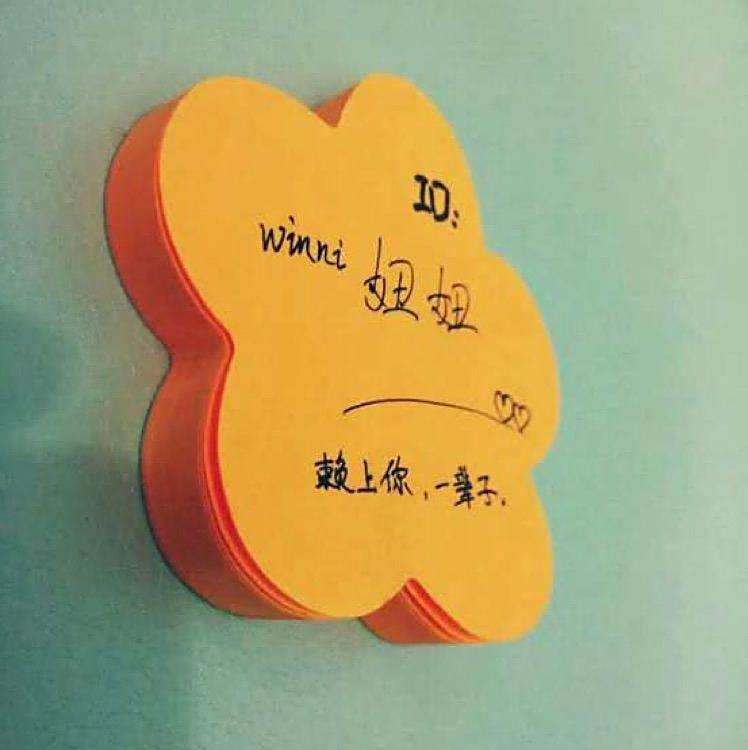 ID:
winni 妞妞
赖上你，一辈子.